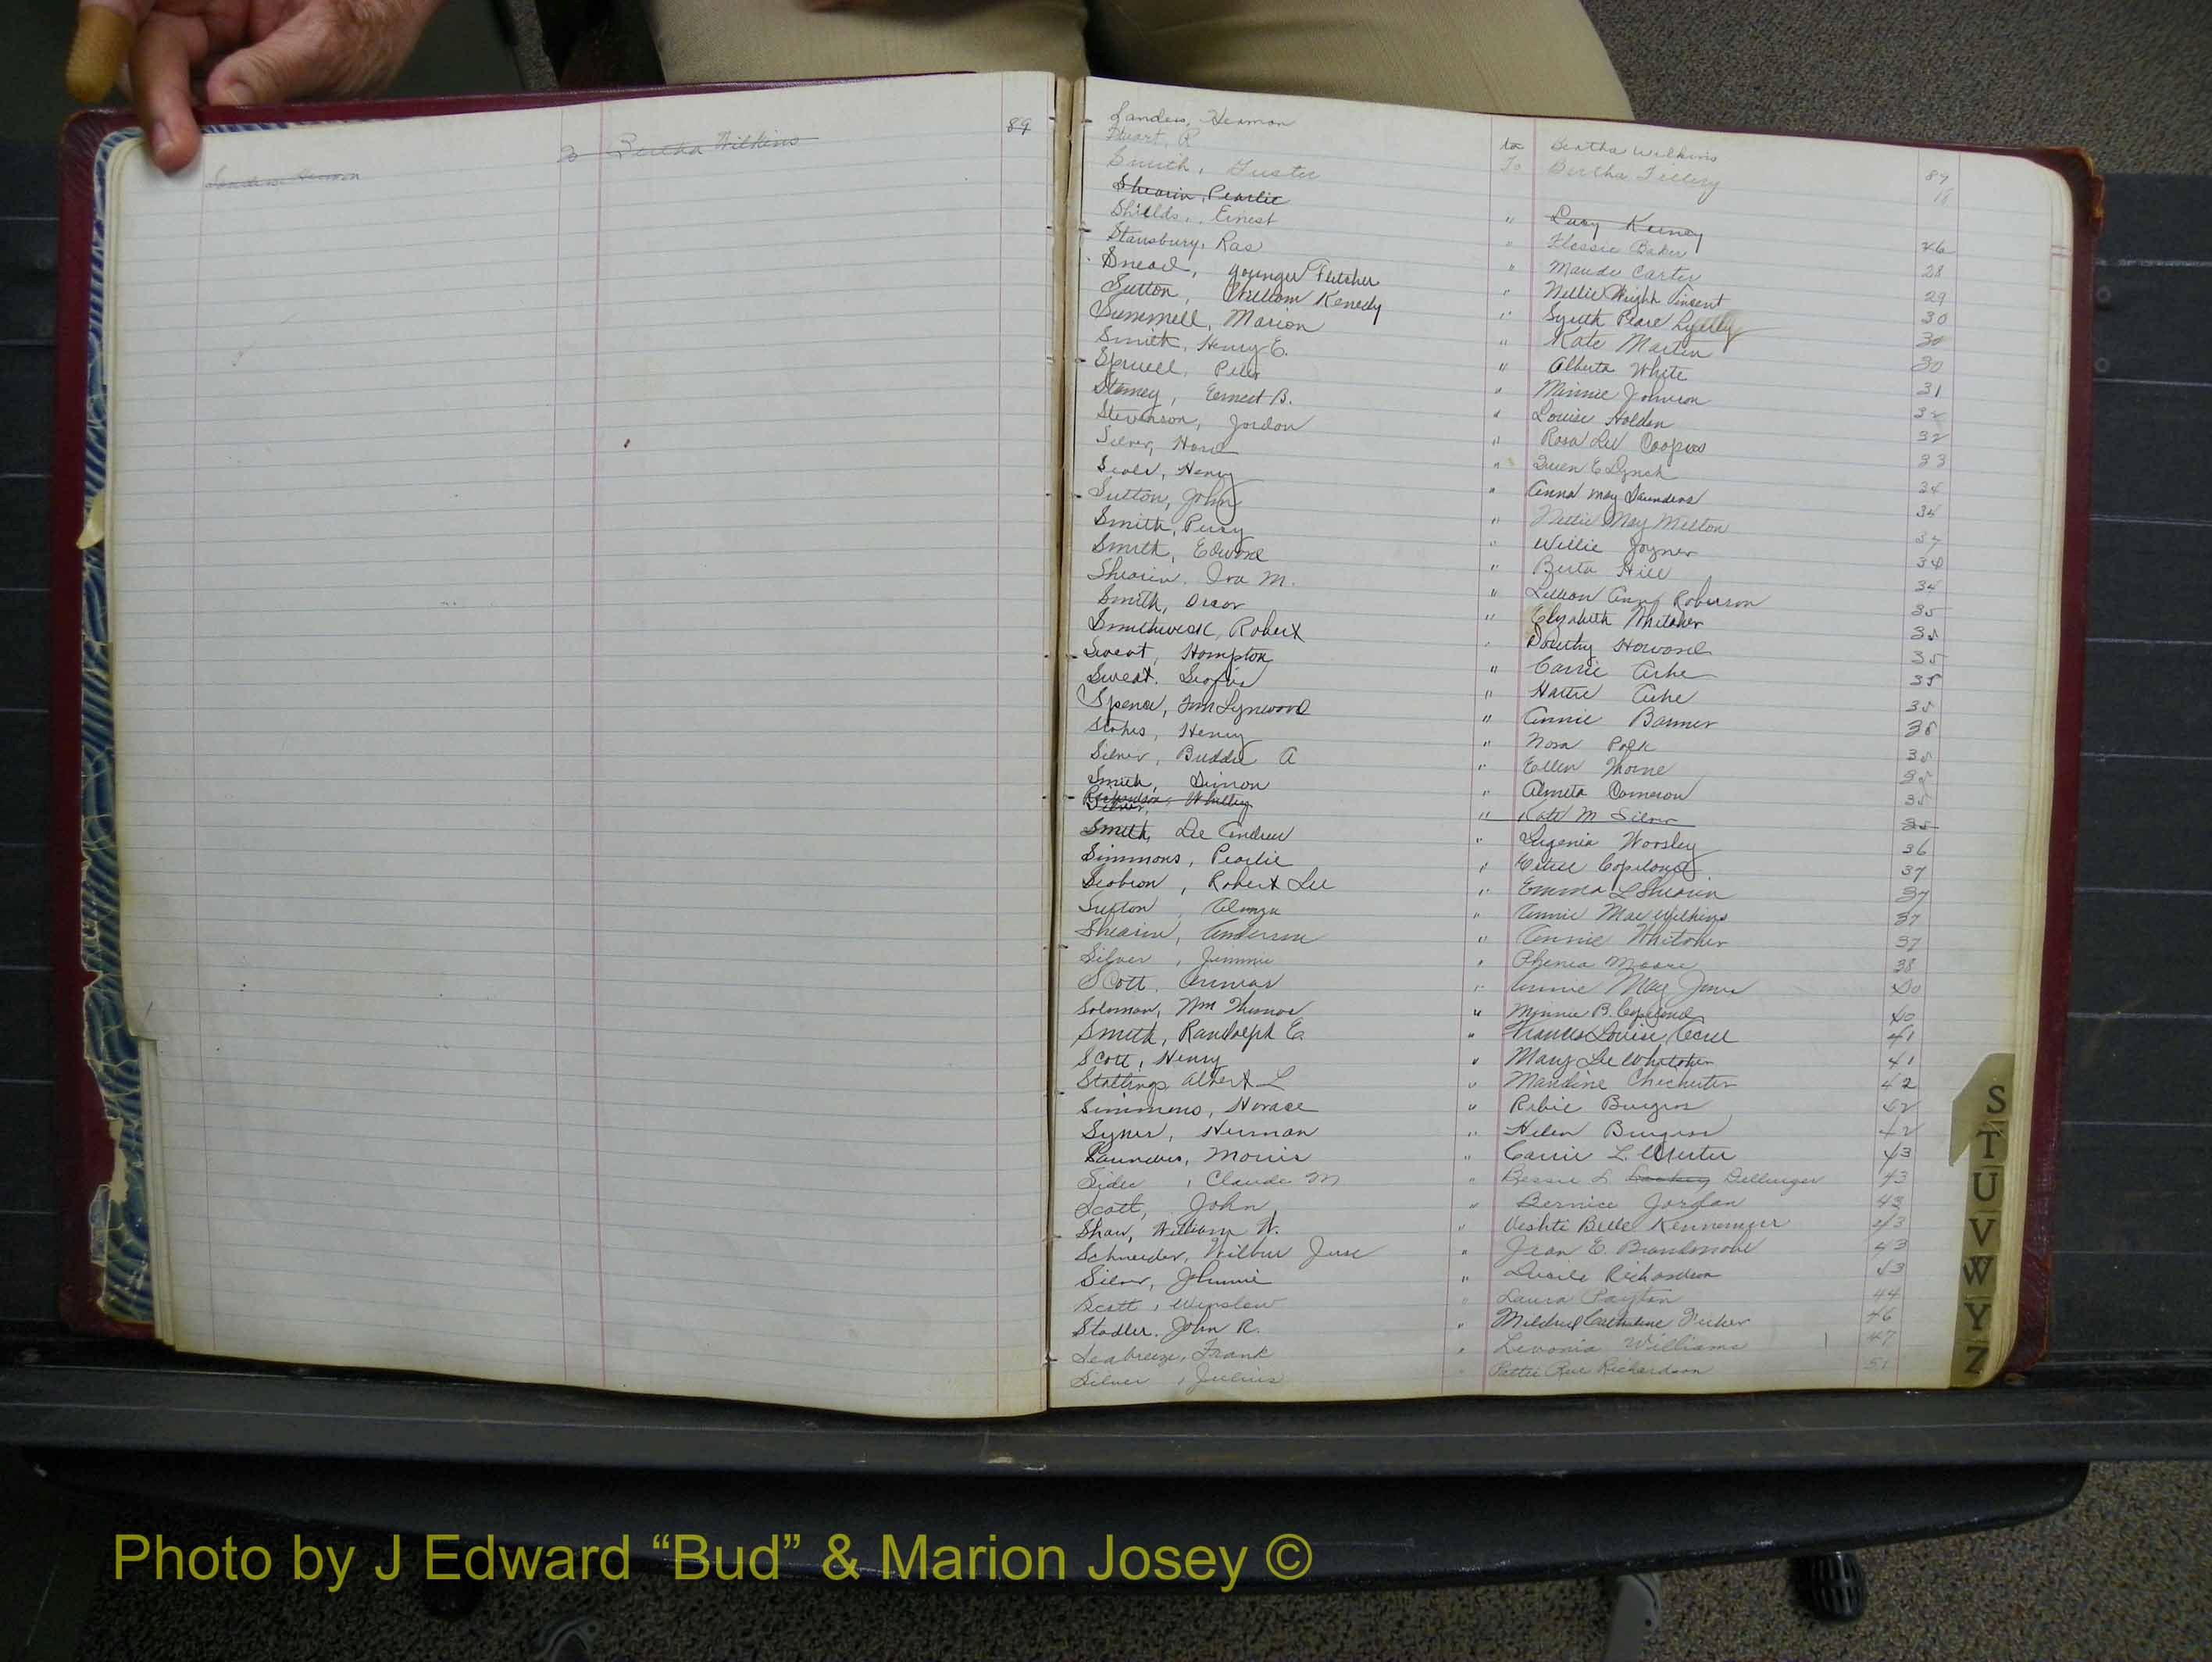 Sanders Herman to Bertha Wilkins 89
Landers, Herman to Bertha Wilkins 89
Stuart, R To Bertha Tillery 11
Smith, Guster
Shearin, Pearlie " Lucy Keeney
Shields, Ernest " Flossie Baker 26
Stansbury, Ras " Maude Carter 28
Snead, younger Fletcher " Nellie Wright Vincent 29
Sutton, William Kenedy " 30
Summell, Marion " Kate Martin 30
Smith, Henry E. " Alberta White 30
Spruell, Peter " Minnie Johnson 31
Stamey, Ernest B. " Louise Holden 32
Stevenson, Jordon " Rosa Lee Coopers 32
Silver, " Queen E Lynch 33
Seals, Henry " Anna May Saunders 34
Sutton, John " Nettie May Melton 34
Smith, Percy " Willie Joyner 34
Smith, Edward " Berta Hill 34
Shearin, Ira M. " Lillian Ann Roberson 34
Smith, Oscar " Elizabeth Whitaker 35
Smithwick, Robert " Dorothy Howard 35
Sweat, Hampton " Carrie Ashe 35
Sweat, " Hattie Ashe 35
Spence, Lynwood " Annie Banner 35
Stokes, Henry " Nora Polk 35
Silver, Buddie A " Ellen Thorne 35
Smith, Simon " Almeta Cameron 35
Richardson, Whitley " Kate M Silver 35
Silver,
Smith, Lee Andrew " Eugenia Worsley 36
Simmons, Pearlie " Copeland 37
Seabron, Robert Lee " Emma L Shearin 37
Sutton, Alonza " Annie Mae Wilkins 37
Shearin, Anderson " Annie Whitaker 37
Silver, Jimmie " Phenia Moore 38
Scott, " Annie May Jones 40
Soloman, Wm Thomas " Minnie B. Copeland 40
Smith, Randolph E. " Frances Louise 41
Scott, Henry " Mary Lee Whitaker 41
Stallings, Albert L " Mandine Chichester 42
Simmons, Horace " Rabie Burgess 42
Syner, Herman " Helen Burgess 42
Saunders, Morris " Carrie L. Wester 43
Sides, Claude M " Bessie L. Dellinger 43
Scott, John " Bernice Jordan 43
Shaw, William W. " Veshti Belle Kennemur 43
Schneider, Wilbur June " Jean E. 43
Silver, Johnnie " Lucile Richardson 43
Scott, Winslow " Laura Payton 44
Stadler, John R. " Mildred Catherine Tucker 46
Seabreeze, Frank " Livonia Williams 47
Silver, Julius " Pattie Rue Richardson 51
S
T
U
V
W
Y
Z
Photo by J Edward “Bud” & Marion Josey ©